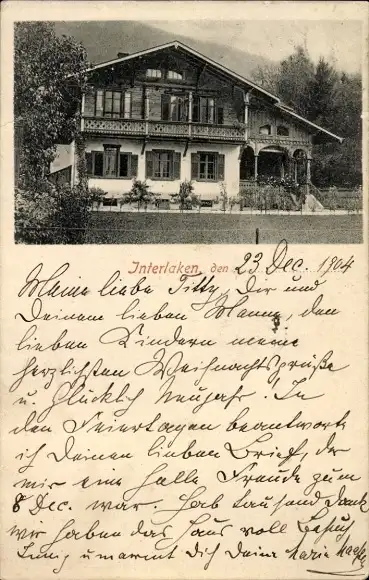 Interlaken, den 23 Dec. 1904
Meine liebe Titty, Dir und
Deinem lieben Manne, den
lieben Kindern meine
herzlichsten Weihnachtsgrüße
u. Glücklich Neujahr! In
den Feiertagen beantworte
ich Deinen lieben Brief, der
mir eine helle Freude zum
8 Dec. war. Hab tausend Dank
wir haben das Haus voll Besuch
Innig umarmt Dich Deine Maria